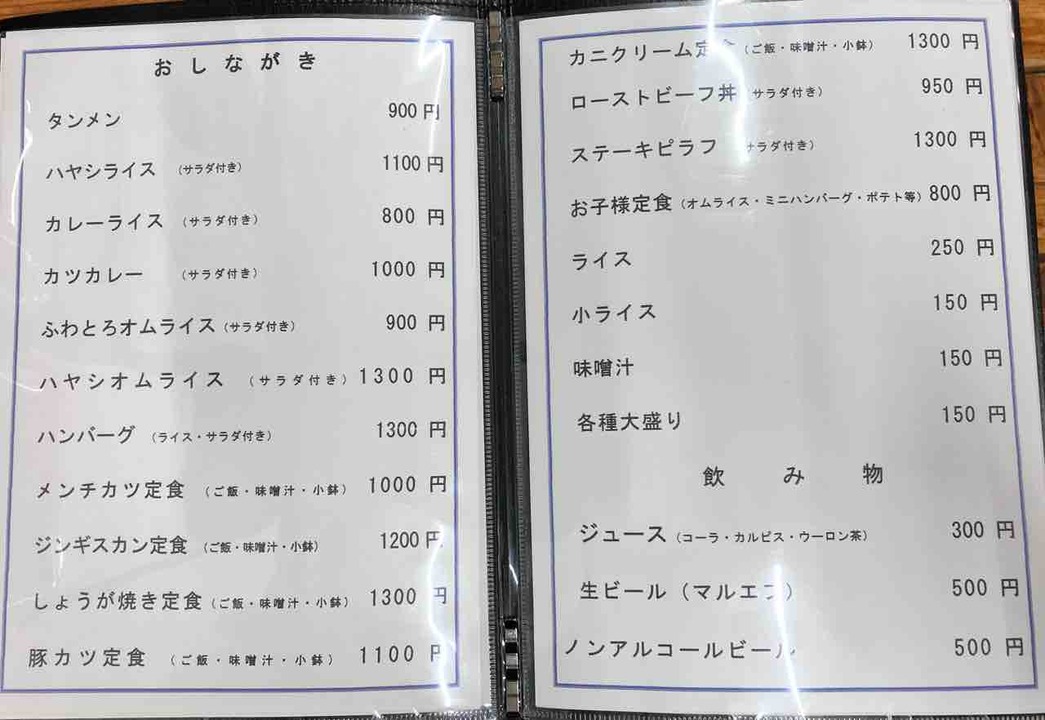 おしながき
タンメン 900円
ハヤシライス (サラダ付き) 1100円
カレーライス (サラダ付き) 800円
カツカレー (サラダ付き) 1000円
ふわとろオムライス (サラダ付き) 900円
ハヤシオムライス (サラダ付き) 1300円
ハンバーグ (ライス・サラダ付き) 1300円
メンチカツ定食 (ご飯・味噌汁・小鉢) 1000円
ジンギスカン定食 (ご飯・味噌汁・小鉢) 1200円
しょうが焼き定食 (ご飯・味噌汁・小鉢) 1300円
豚カツ定食 (ご飯・味噌汁・小鉢) 1100円
カニクリーム定食 (ご飯・味噌汁・小鉢) 1300円
ローストビーフ丼 (サラダ付き) 950円
ステーキピラフ (サラダ付き) 1300円
お子様定食 (オムライス・ミニハンバーグ・ポテト等) 800円
ライス 250円
小ライス 150円
味噌汁 150円
各種大盛り 150円
飲み物
ジュース (コーラ・カルピス・ウーロン茶) 300円
生ビール (マルエフ) 500円
ノンアルコールビール 500円